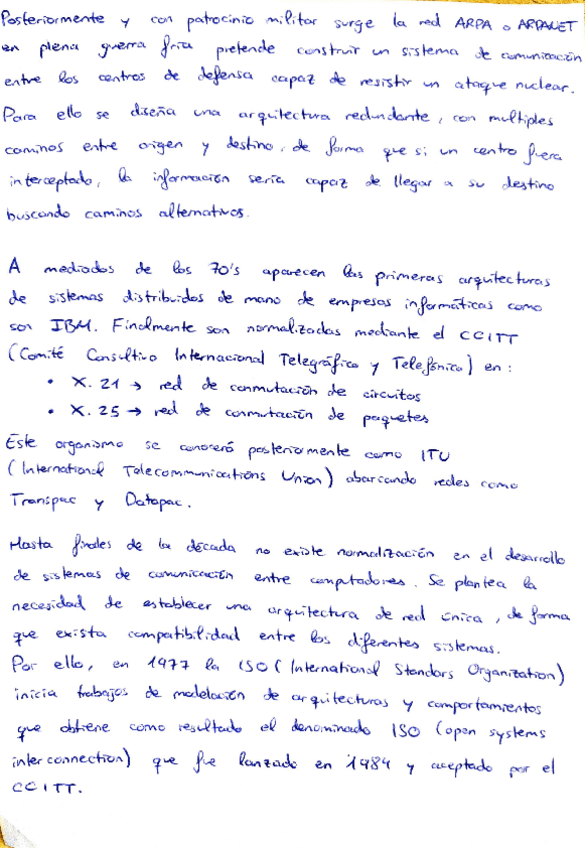 Posteriormente y con patrocinio militar surge la red ARPA o ARPANET
en plena guerra fria pretende construir un sistema de comunicación
entre los centros de defensa capaz de resistir un ataque nuclear.
Para ello se diseña una arquitectura redundante, con multiples
caminos entre origen y destino, de forma que si un centro fuera
interceptado, la información sería capaz de llegar a su destino
buscando caminos alternativos.
A mediados de los 70's aparecen las primeras arquitecturas
de sistemas distribuidos de mano de empresas informáticas como
son IBM. Finalmente son normalizadas mediante el CCITT
(Comité Consultivo Internacional Telegráfico y Telefónico) en:
• X.21 → red de conmutación de circuitos
• X.25 → red de conmutación de paquetes
Este organismo se conocerá posteriormente como ITU
(International Telecommunications Union) abarcando redes como
Transpac y Datapac.
Hasta finales de la década no existe normalización en el desarrollo
de sistemas de comunicación entre computadores. Se plantea la
necesidad de establecer una arquitectura de red única, de forma
que exista compatibilidad entre los diferentes sistemas.
Por ello, en 1977 la ISO (International Standars Organization)
inicia trabajos de modelación de arquitecturas y comportamientos
que obtiene como resultado el denominado ISO (open systems
interconnection) que fue lanzado en 1984 y aceptado por el
CCITT.